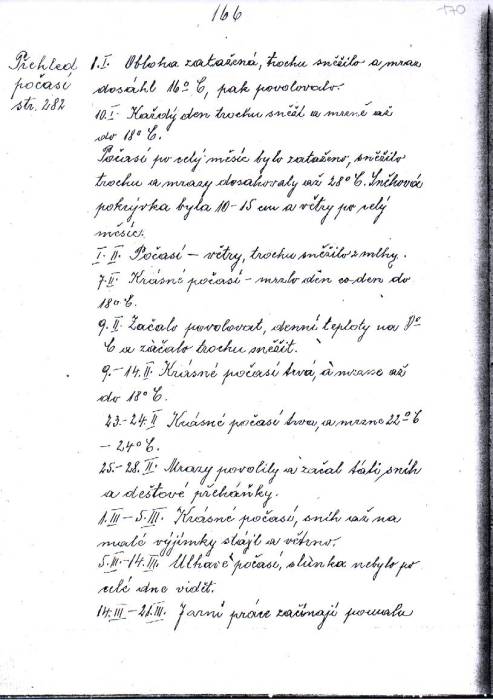 166
170
Přehled
počasí
str. 282
1.I. Obloha zatažená, trochu sněžilo a mraz
dosáhl 16° C, pak povolovalo.
10.I Každý den trochu sněží a mrzne až
do 18° C.
Počasí po celý měsíc bylo zataženo, sněžilo
trochu a mrazy dosahovaly až 28° C. Sněhová
pokrývka byla 10-15 cm a větry po celý
měsíc.
I. II. Počasí – větry, trochu sněžilo z mlhy.
7.II. Krásné počasí - mrzlo den co den do
18° C.
9.II. Začalo povolovat, denní teploty na 0°
C a začalo trochu sněžit.
9.-14.II. Krásné počasí trvá, a mrzne až
do 18° C.
23.-24.II Krásné počasí trva, a mrzne 22° C
- 24° C.
25.-28.II. Mrazy povolily a začal táti, sníh
a dešťové přeháňky.
1.III – 5.III. Krásné počasí, sníh až na
malé výjimky stájl a větrno.
5.III.-14.III. Mlhavé počasí, slunka nebylo po
celé dne vidět.
14.III – 21.III. Jarní práce začínají pomalu